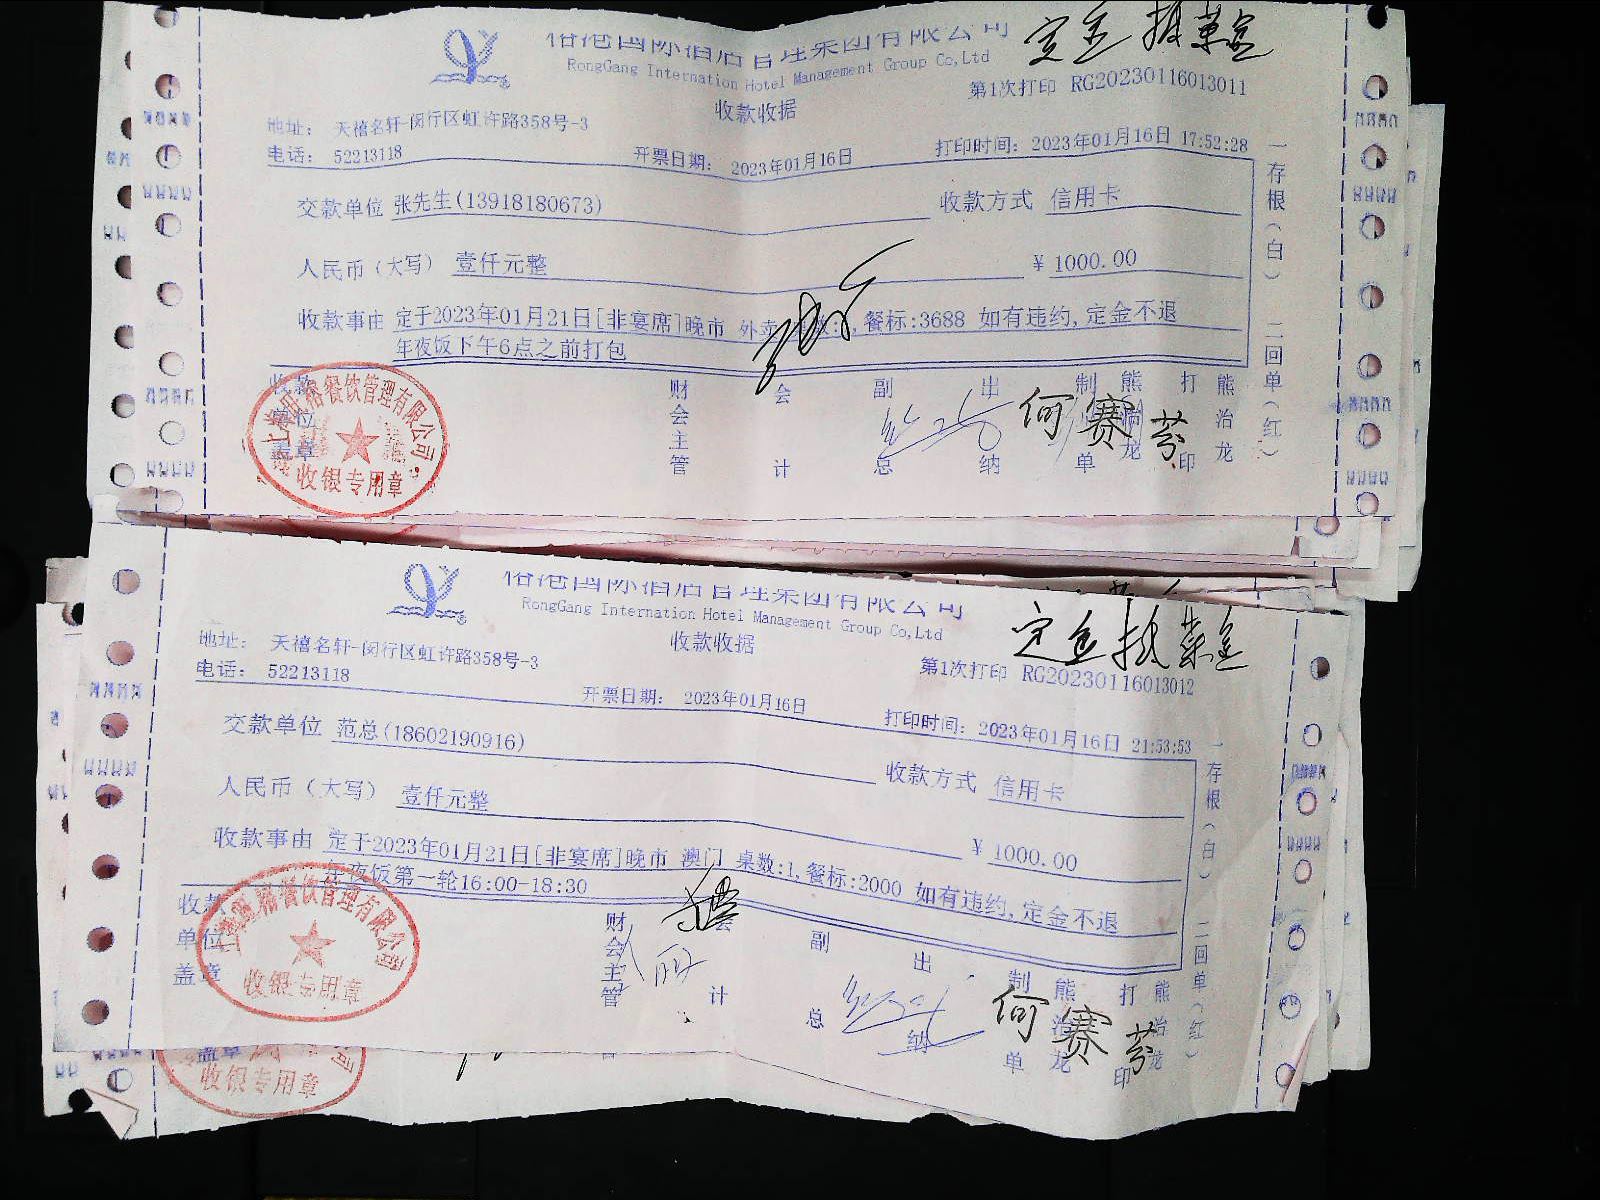 裕港国际酒店管理集团有限公司
RongGang Internation Hotel Management Group Co,Ltd
定金
收款收据
第1次打印 RG20230116013011
地址： 天禧名轩-闵行区虹许路358号-3
电话： 52213118
开票日期： 2023年01月16日
打印时间：2023年01月16日 17:52:28
交款单位 张先生(13918180673)
收款方式 信用卡
人民币（大写） 壹仟元整
¥ 1000.00
收款事由 定于2023年01月21日[非宴席]晚市 外卖 ,餐标:3688 如有违约,定金不退
年夜饭下午6点之前打包
一存根（白） 二回单（红）
收款单位盖章
财会主管
会计
副总
出纳
制单
熊治龙
打印
熊治龙
何赛芬
餐饮管理有限公司
收银专用章
裕港国际酒店管理集团有限公司
RongGang Internation Hotel Management Group Co,Ltd
定金
收款收据
第1次打印 RG20230116013012
地址： 天禧名轩-闵行区虹许路358号-3
电话： 52213118
开票日期： 2023年01月16日
打印时间：2023年01月16日 21:53:53
交款单位 范总(18602190916)
收款方式 信用卡
人民币（大写） 壹仟元整
¥ 1000.00
收款事由 定于2023年01月21日[非宴席]晚市 澳门 桌数:1,餐标:2000 如有违约,定金不退
年夜饭第一轮16:00-18:30
一存根（白） 二回单（红）
收款单位盖章
财会主管
会计
副总
出纳
制单
熊治龙
打印
熊治龙
何赛芬
餐饮管理有限公司
收银专用章
盖章
收银专用章